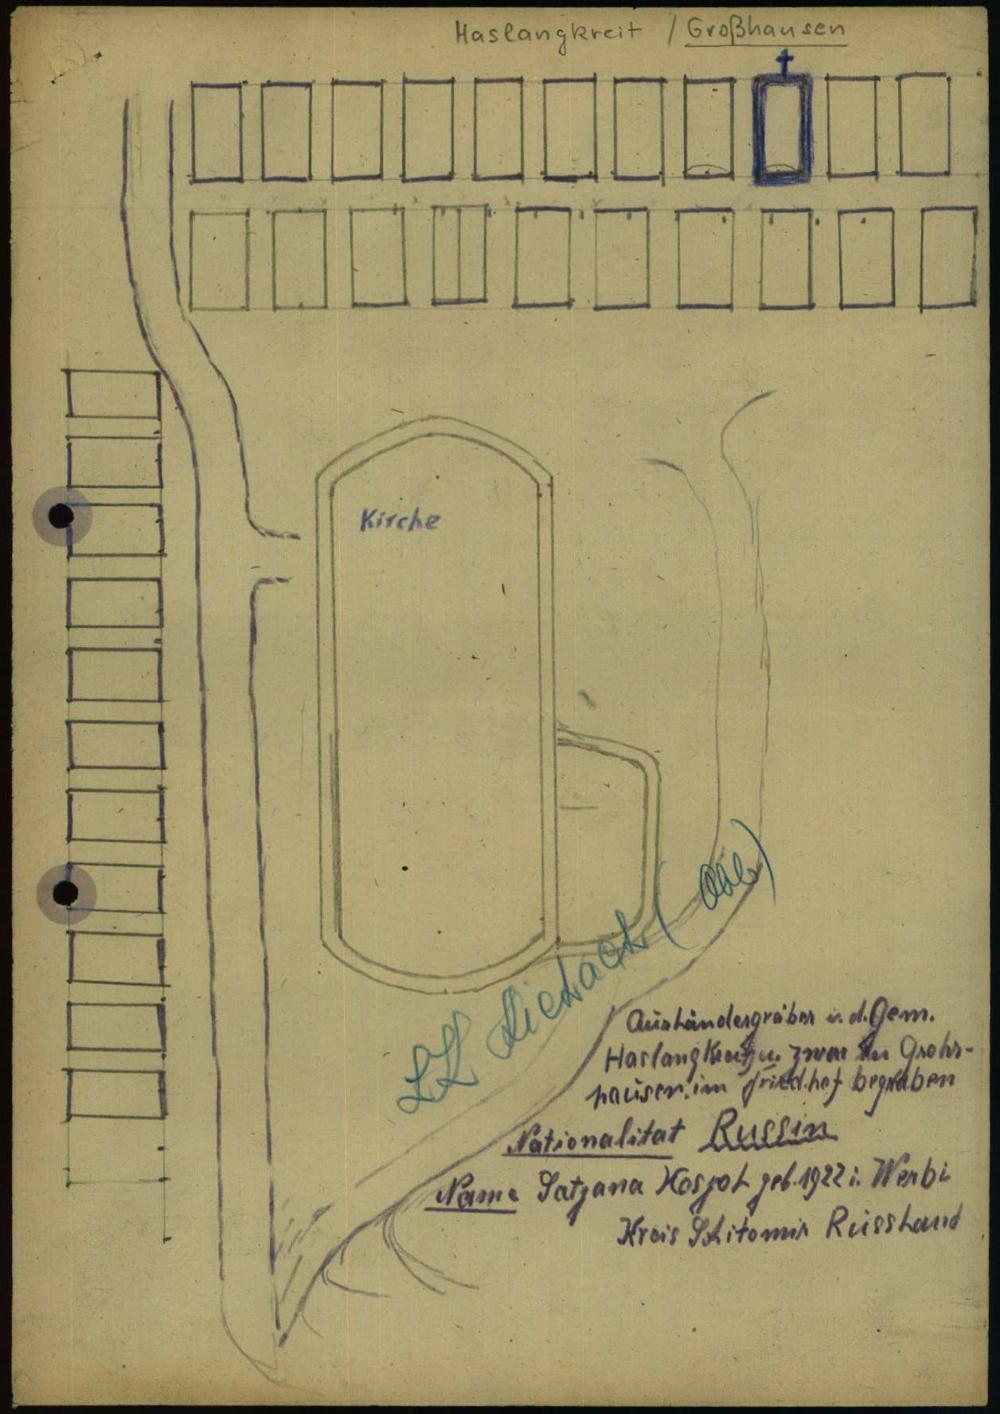 Haslangkreit / Großhausen
Kirche
LK Aichach (Obb)
Ausländergräber i. d. Gem.
Haslangkreit u. zwar in Grohs-
hausen im Friedhof begraben
Nationalität Russin
Name Tatjana Kosjol geb. 1922 i. Werbi
Kreis Schitomir Russland